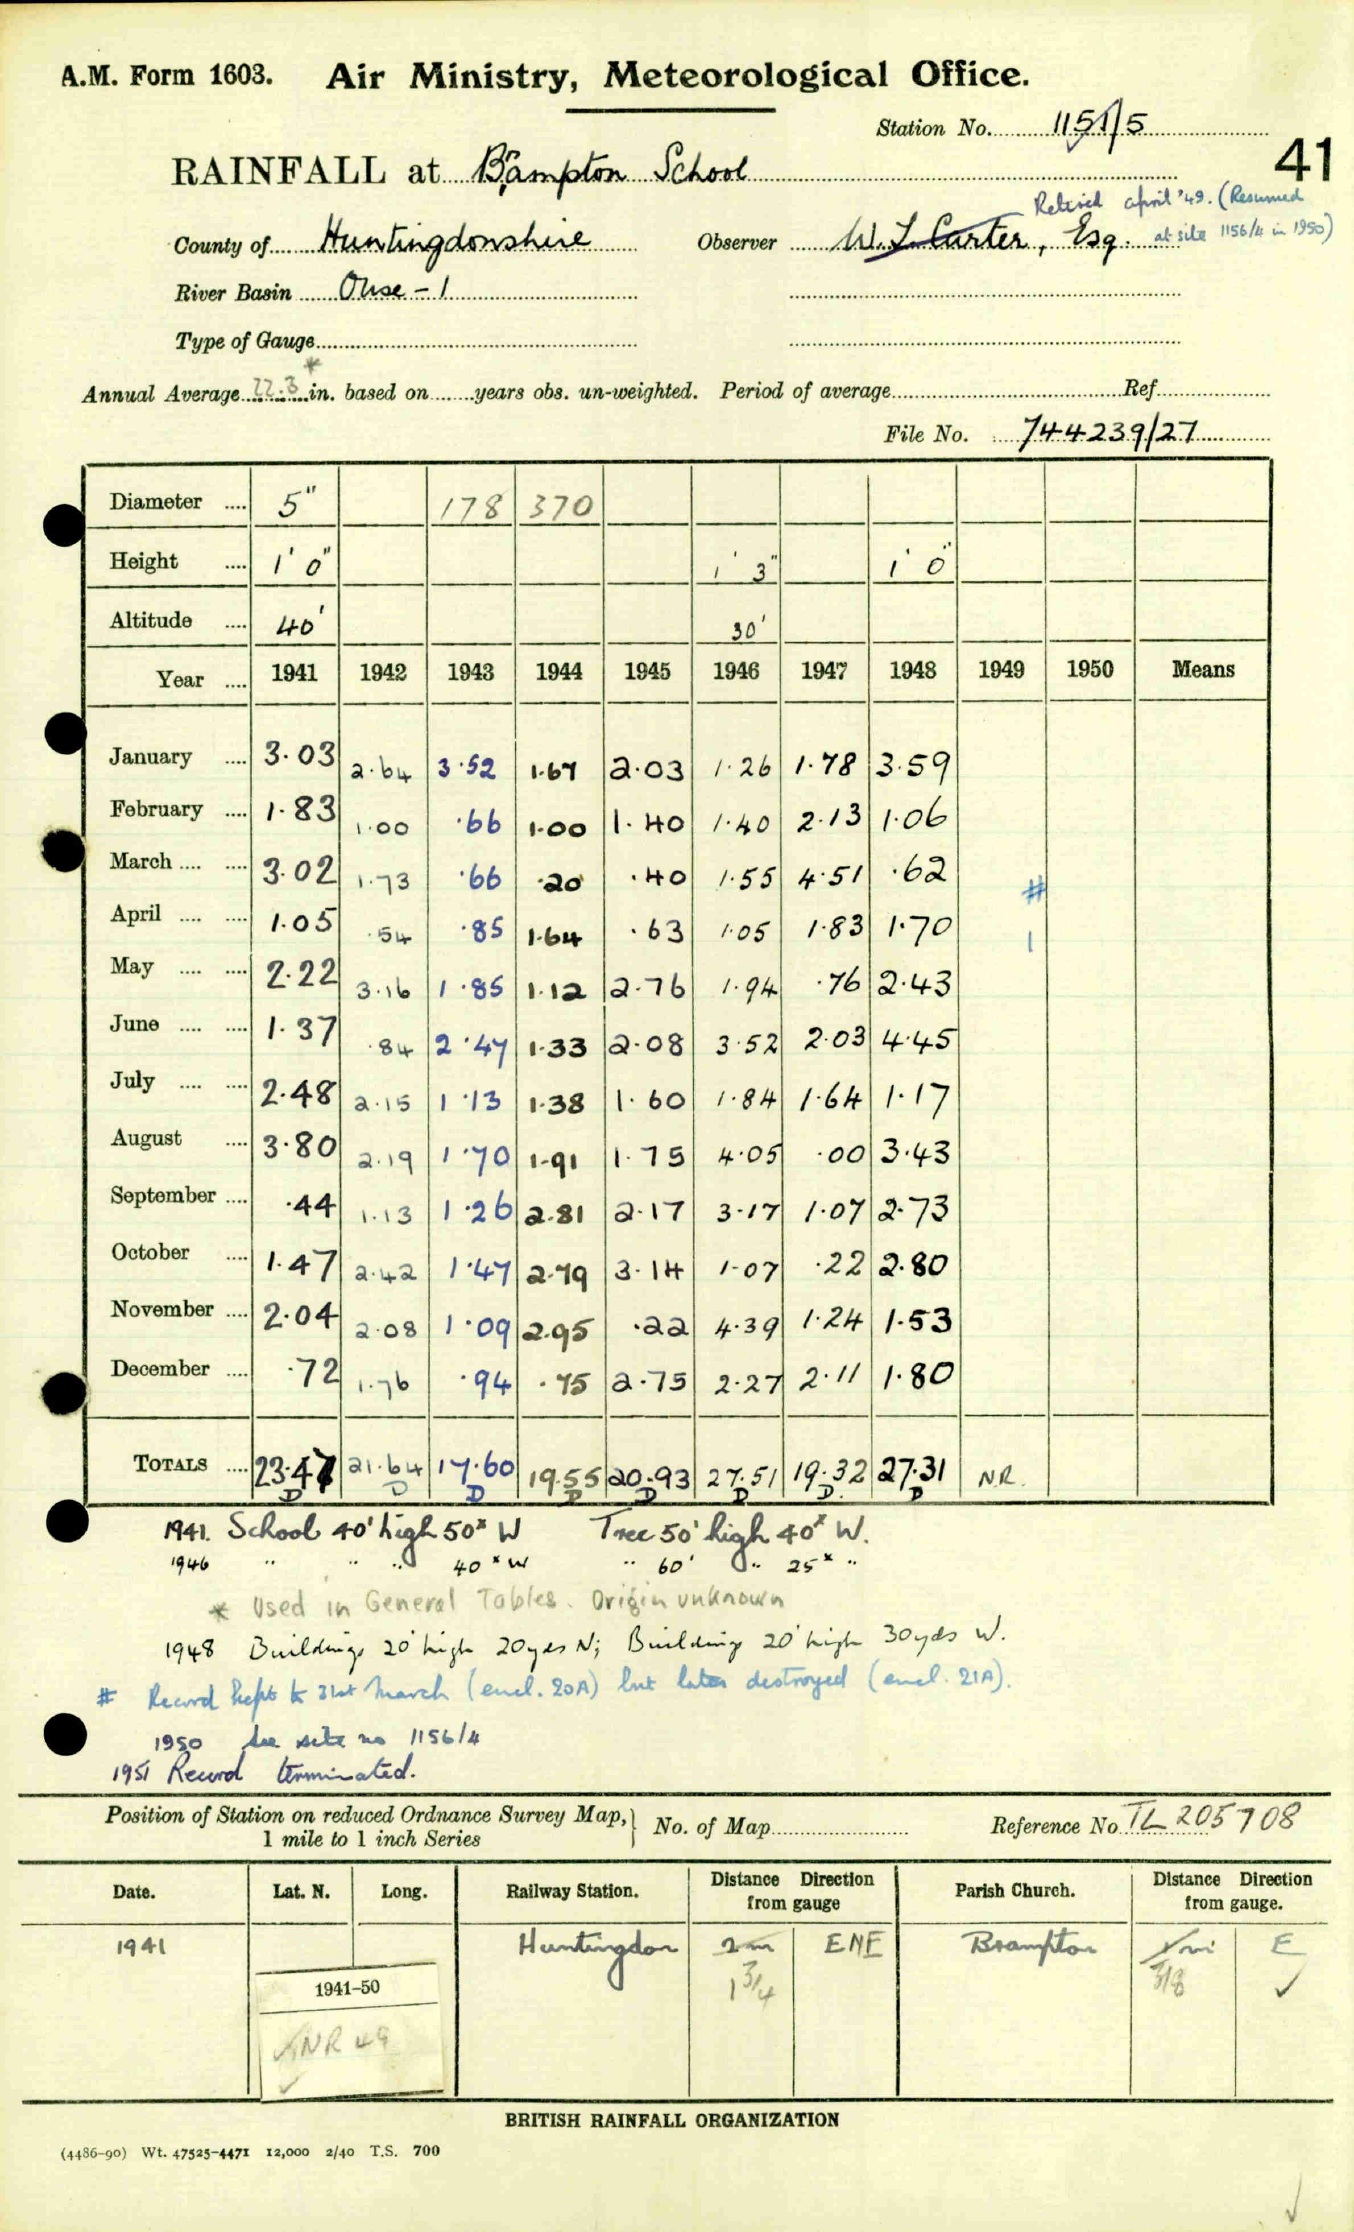 A.M. Form 1603. Air Ministry, Meteorological Office.
Station No. 1151/5
41
RAINFALL at Brampton School
Retired april '49. (Resumed
at site 1156/4 in 1950)
County of Huntingdonshire Observer W. L. Carter, Esq.
River Basin Ouse - 1
Type of Gauge
Annual Average 22.3* in. based on years obs. un-weighted. Period of average Ref
File No. 744239/27
Diameter .... 5" 178 370
Height .... 1' 0" 1' 3" 1' 0"
Altitude .... 40' 30'
Year .... 1941 1942 1943 1944 1945 1946 1947 1948 1949 1950 Means
January .... 3.03 2.64 3.52 1.67 2.03 1.26 1.78 3.59
February .... 1.83 1.00 .66 1.00 1.40 1.40 2.13 1.06
March .... .... 3.02 1.73 .66 .20 .40 1.55 4.51 .62 #
April .... .... 1.05 .54 .85 1.64 .63 1.05 1.83 1.70 1
May .... .... 2.22 3.16 1.85 1.12 2.76 1.94 .76 2.43
June .... .... 1.37 .84 2.47 1.33 2.08 3.52 2.03 4.45
July .... .... 2.48 2.15 1.13 1.38 1.60 1.84 1.64 1.17
August .... 3.80 2.19 1.70 1.91 1.75 4.05 .00 3.43
September .... .44 1.13 1.26 2.81 2.17 3.17 1.07 2.73
October .... 1.47 2.42 1.47 2.79 3.14 1.07 .22 2.80
November .... 2.04 2.08 1.09 2.95 .22 4.39 1.24 1.53
December .... .72 1.76 .94 .75 2.75 2.27 2.11 1.80
TOTALS .... 23.47 21.64 17.60 19.55 20.93 27.51 19.32 27.31 NR.
D D D D D D D. D
1941. School 40' high 50x W Tree 50' high 40x W.
1946 " " " 40x W " 60' " 25x "
* Used in General Tables. Origin unknown
1948 Buildings 20' high 20yds N; Building 20' high 30yds W.
# Record kept to 31st March (encl. 20A) but later destroyed (encl. 21A).
1950 See site no 1156/4
1951 Record terminated.
Position of Station on reduced Ordnance Survey Map,} No. of Map Reference No TL 205708
1 mile to 1 inch Series
Date. Lat. N. Long. Railway Station. Distance Direction from gauge Parish Church. Distance Direction from gauge.
1941 Huntingdon 2m ENE Brampton E
1 3/4 3/8 ✓
1941-50
NR 49
BRITISH RAINFALL ORGANIZATION
(4486-90) Wt. 47525-4471 12,000 2/40 T.S. 700